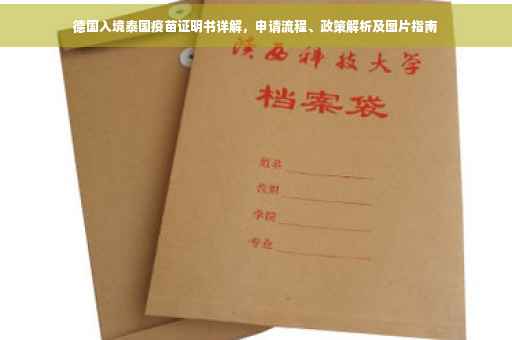 德国入境泰国疫苗证明书详解，申请流程、政策解析及图片指南
陕西科技大学
档案袋
姓名
学院
专业